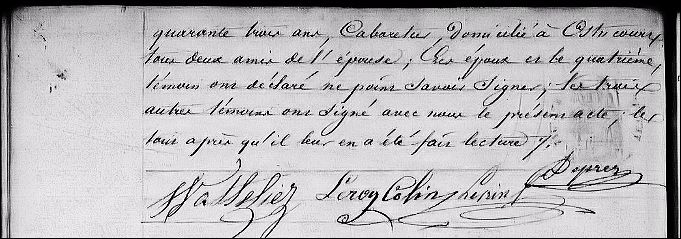 quarante trois ans, Cabaretier, Domicilié à Estricourt,
tous deux amis de l'épouse; Les époux et le quatrième,
témoin ont déclaré ne point savoir signer; les trois
autres témoins ont signé avec nous le présent acte les
tous après qu'il leur en a été fait lecture ./.
Duprez
Watteliez Leroy Colin